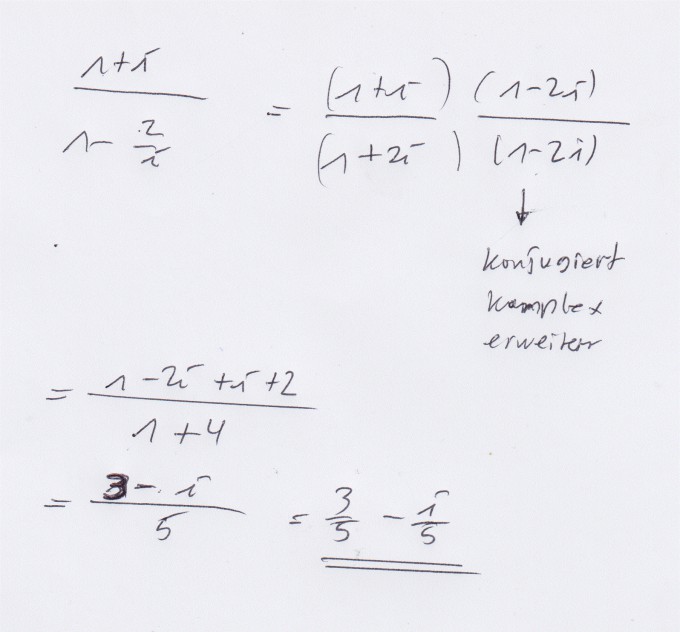 (1+i)/(1 - 2/i) = ((1+i) (1-2i))/((1+2i) (1-2i))
↓
konjugiert
komplex
erweitern
= (1-2i+i+2)/(1+4)
= (3-i)/5 = 3/5 - i/5